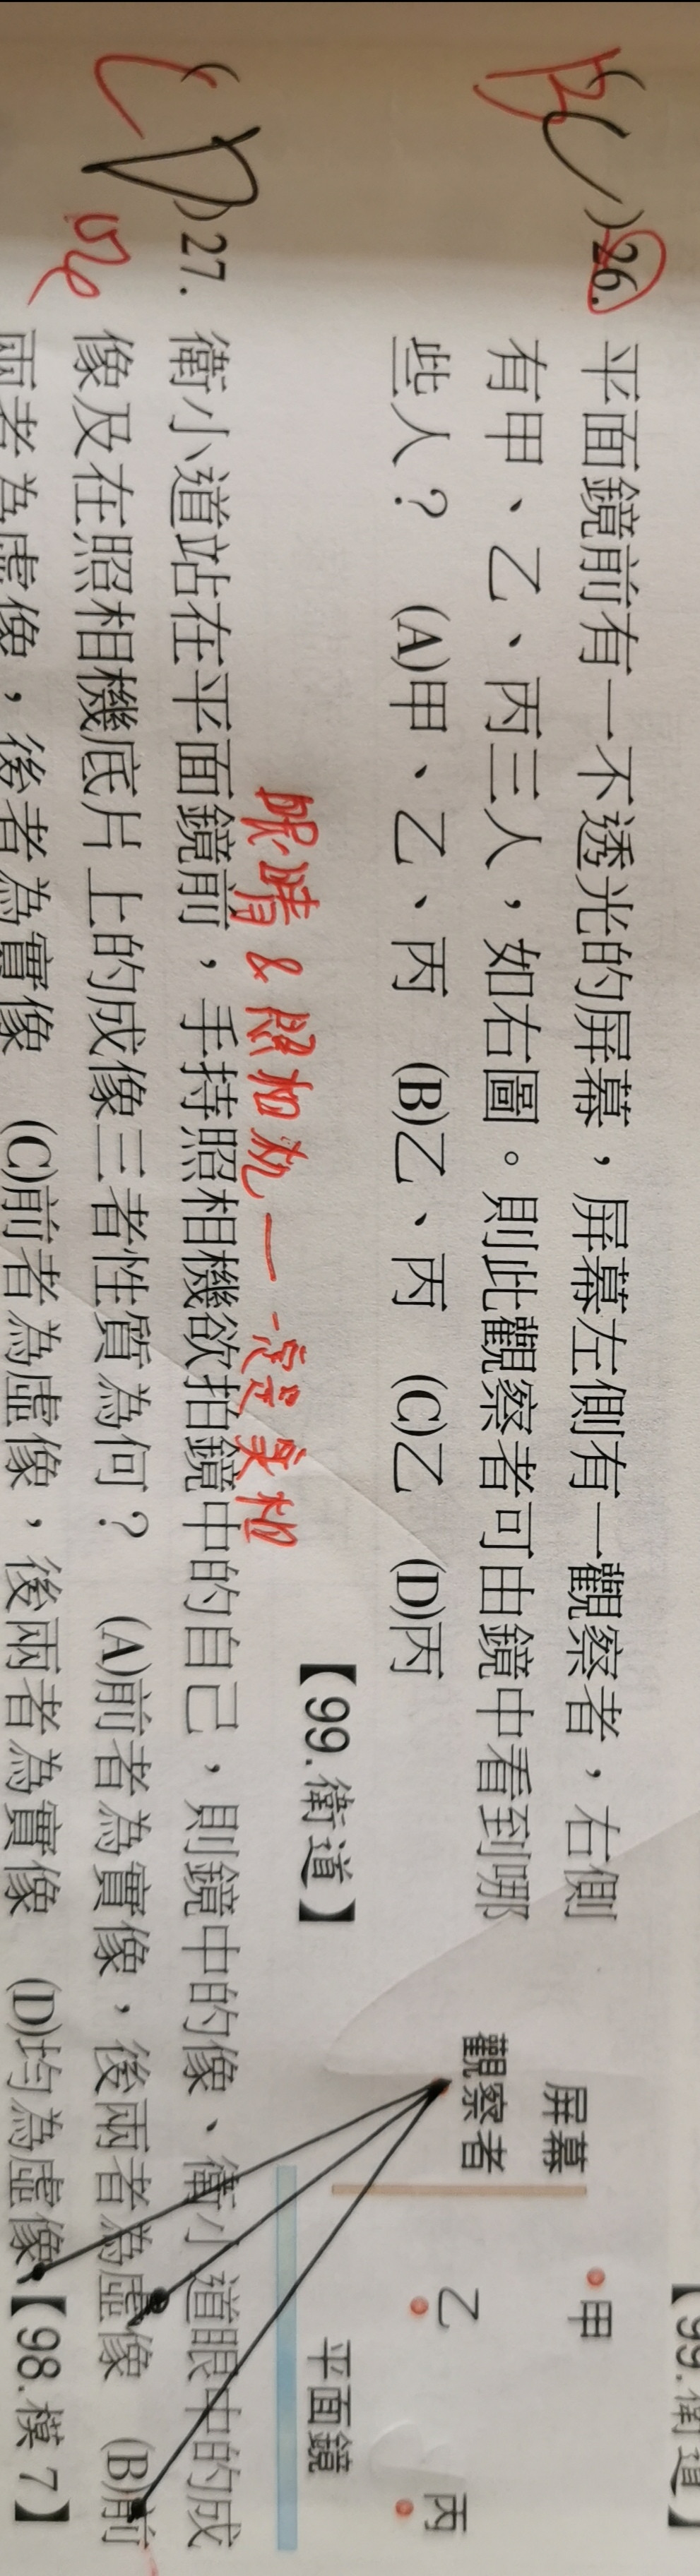 【99.衛道】
(C)26. 平面鏡前有一不透光的屏幕，屏幕左側有一觀察者，右側
有甲、乙、丙三人，如右圖。則此觀察者可由鏡中看到哪
些人？ (A)甲、乙、丙 (B)乙、丙 (C)乙 (D)丙
【99.衛道】
B
屏幕
甲
觀察者
乙
丙
平面鏡
眼睛&照相机一一定是实相
(D)27. 衛小道站在平面鏡前，手持照相機欲拍鏡中的自己，則鏡中的像、衛小道眼中的成
像及在照相機底片上的成像三者性質為何？ (A)前者為實像，後兩者為虛像 (B)前
兩者為虛像，後者為實像 (C)前者為虛像，後兩者為實像 (D)均為虛像【98.模7】
C